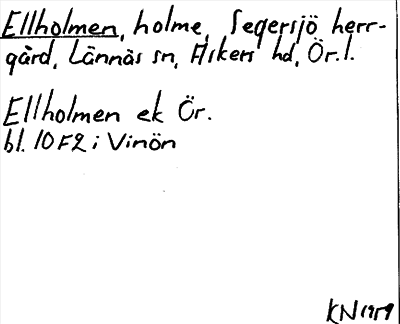 Ellholmen, holme, Segersjö herr-
gård, Lännäs sn, Askers hd, Ör. l.
Ellholmen ek Ör.
bl. 10F2 i Vinön
KN 1959